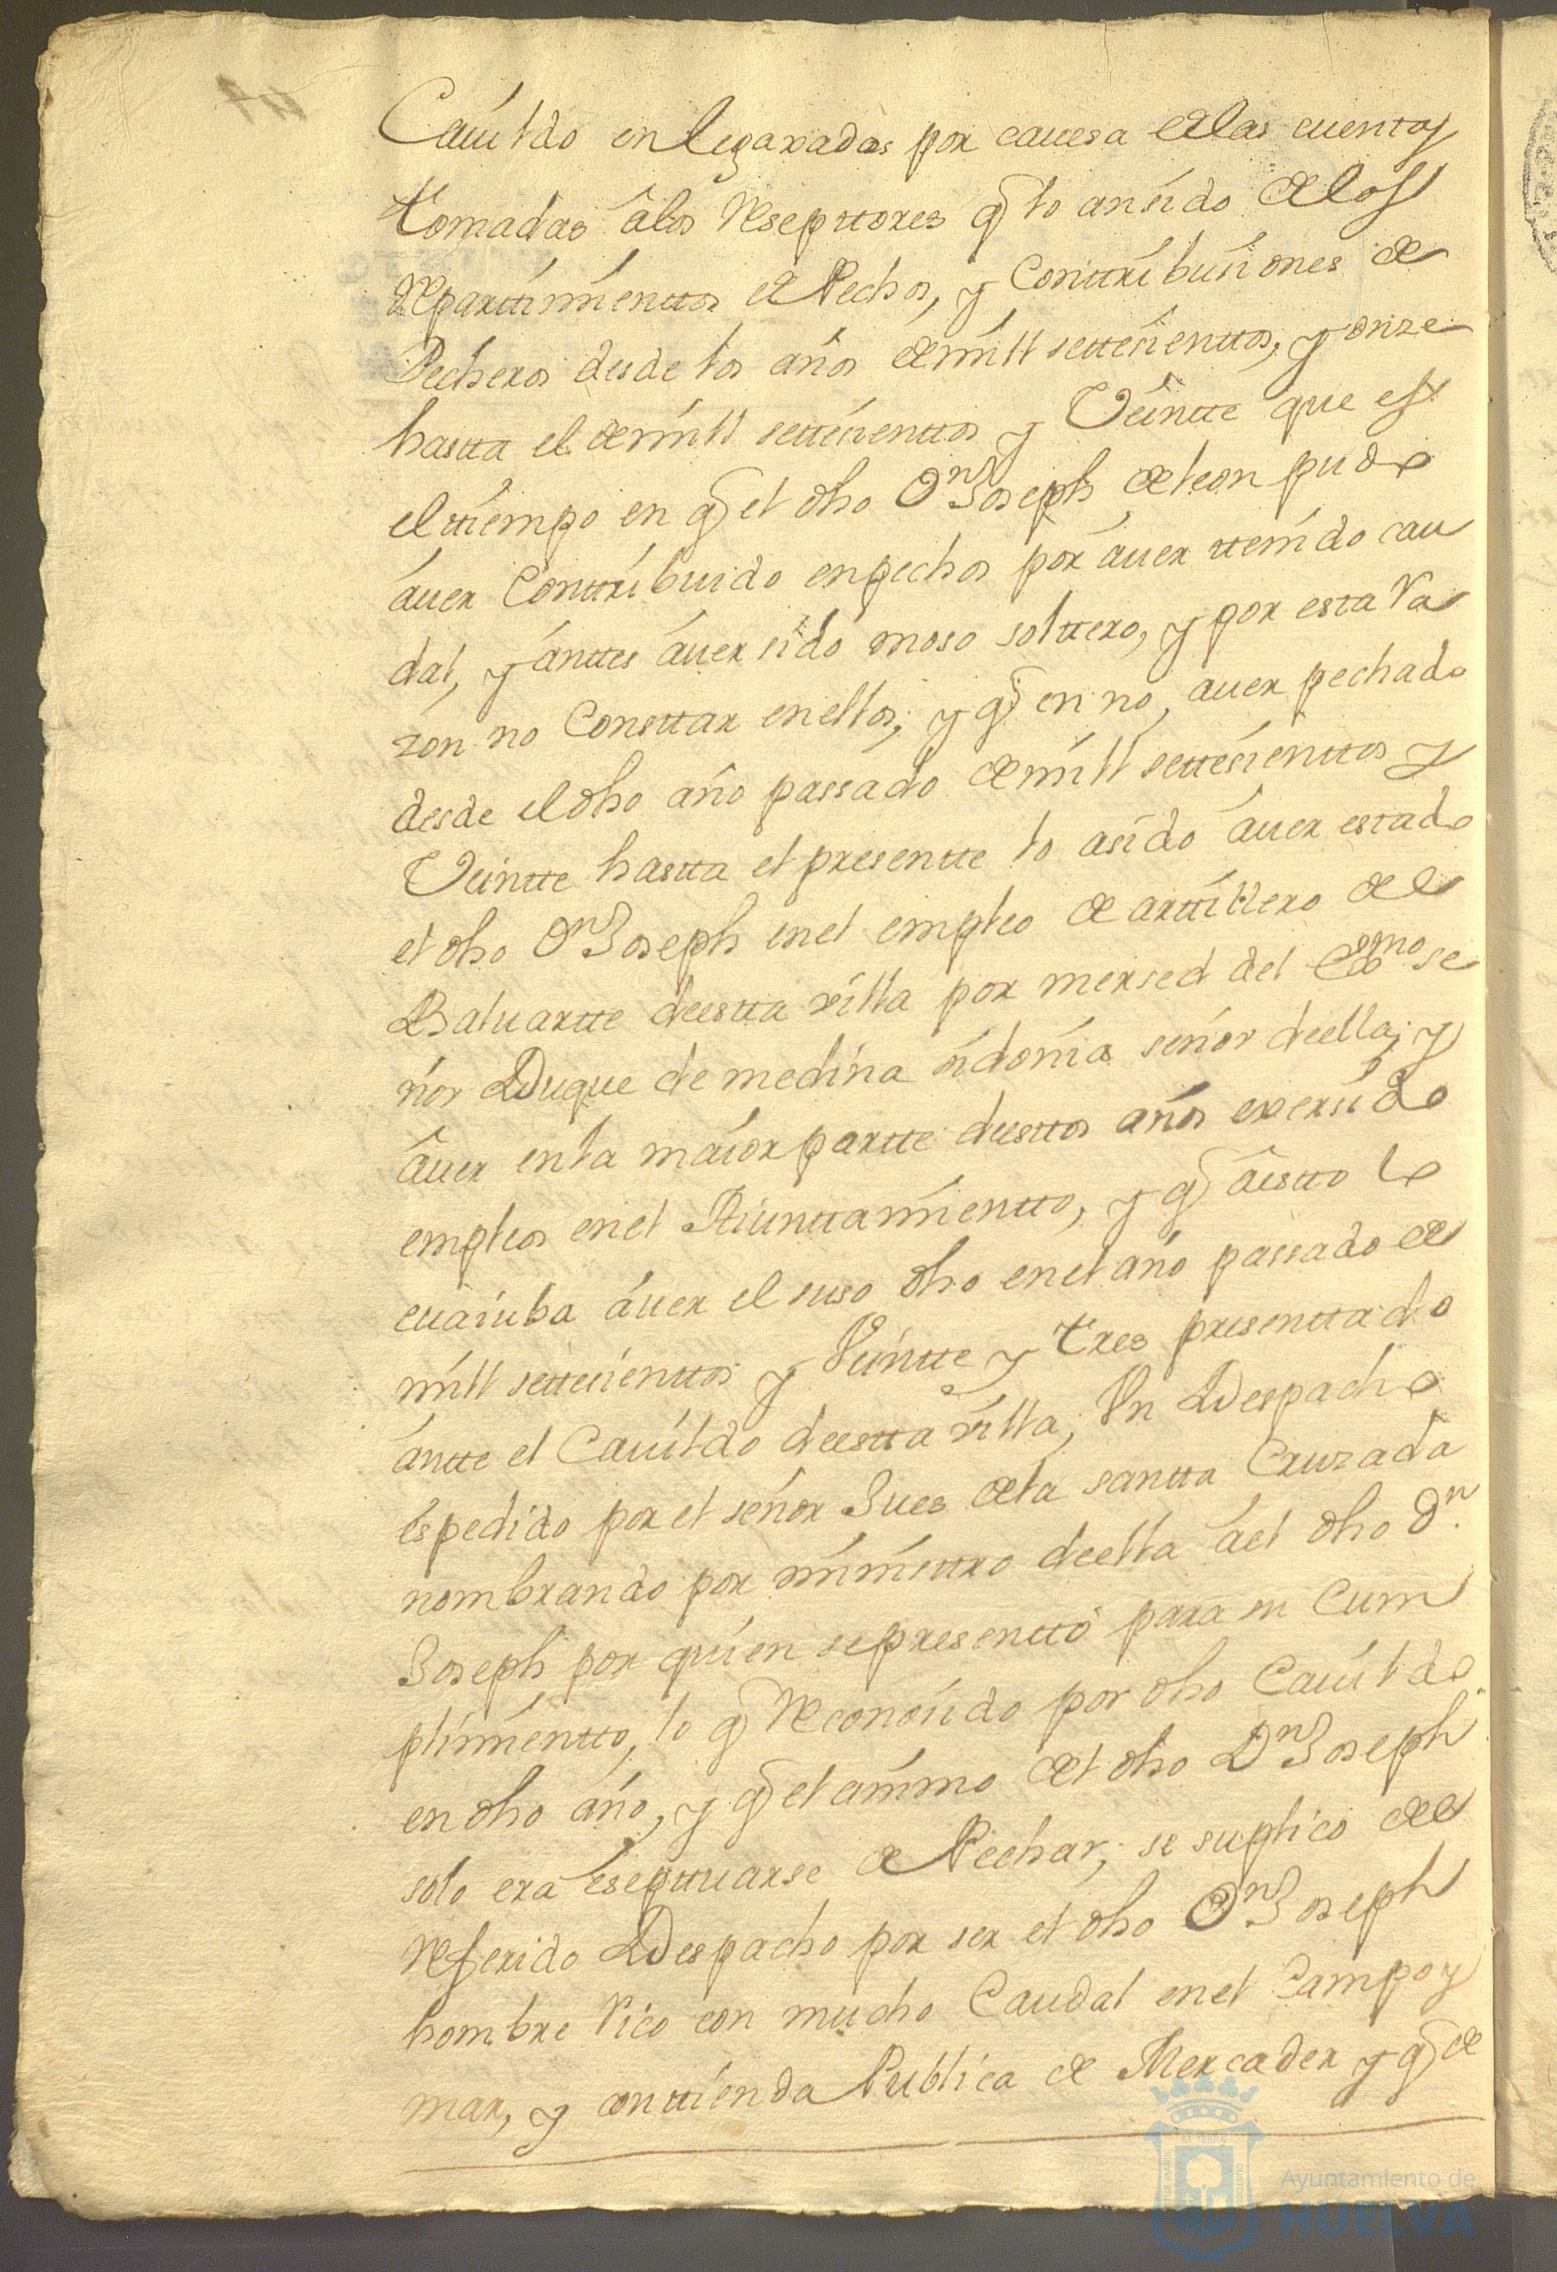 Cauildo enlegaxadas por cauesa delas cuentas
tomadas âlos Resepttores q̃ lo an sido delos
Reparttimienttos de Pechos, y Conttribusiones de
Pecheros desde los años de mill settesienttos, y onze
hastta el de mill settesienttos y Veintte que es
el ttiempo en q̃ el dho Dn Joseph de leon pudo
áuer Conttribuido en pechos por áuer ttenido cau
dal, y ánttes áuer sido moso solttero, y por esta Ra
zon no Consttar en ellos; y q̃ en no auer pechado
desde el dho año passado de mill settesienttos y
Veintte hastta el presentte lo a sido áuer estado
el dho Dn Joseph en el empleo de arttillero del
Baluartte deestta villa por mersed del Exmo se
ñor Duque de medina sidonia señor deella; y
âuer en la maior partte deesttos años exersido
empleos en el Aiunttamientto, y q̃ âestto lo
euaiuba áuer el suso dho en el año passado de
mill settesienttos y Veintte y tres presenttado
ántte el Cauildo deestta villa, Vn Despacho
espedido por el señor Jues dela santta Cruzada
nombrando por ministtro deella áel dho Dn.
Joseph por quien se presenttó para su Cum
plimientto, lo q̃ Reconosido por dho Cauildo
en dho año, y q̃ el animo del dho Dn Joseph
solo era esepttuarse de Pechar; se suplico del
Referido Despacho por ser el dho Dn Joseph
hombre Rico con mucho Caudal en el Campo y
mar, y con ttienda Publica de Mercader y q̃ de
Ayuntamiento de
HUELVA